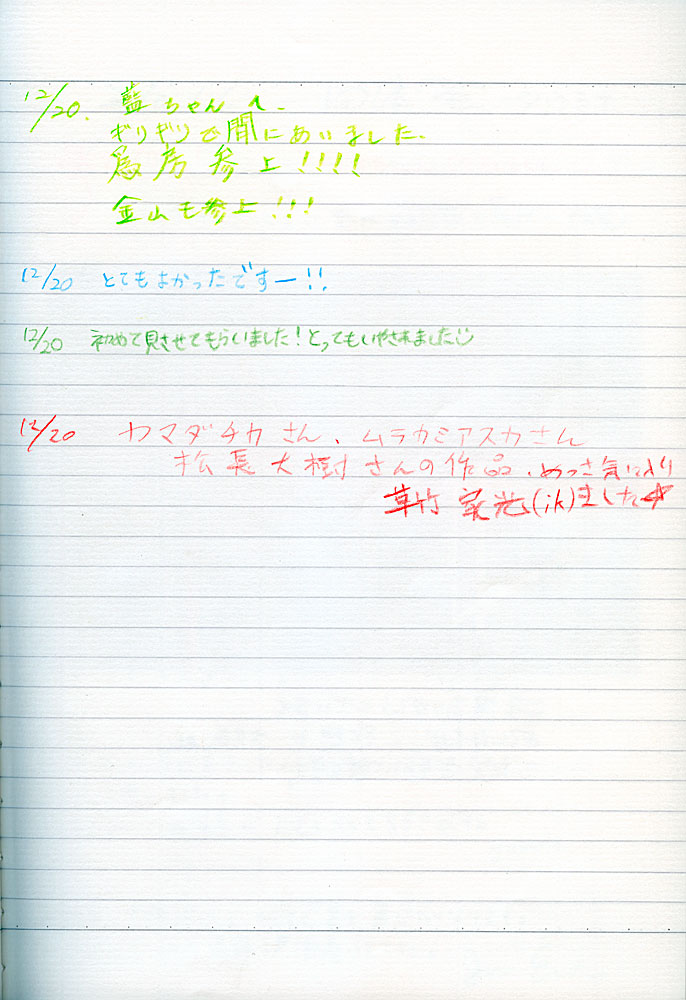 12/20. 藍ちゃんへ
ギリギリで間にあいました。
為房参上!!!!
金山も参上!!!
12/20 とてもよかったですー!!
12/20 初めて見させてもらいました!とってもいやされました
12/20 ヤマダチカさん、ムラカミアスカさん
松長大樹さんの作品、めっさ気に入り
草竹 (ik)ました